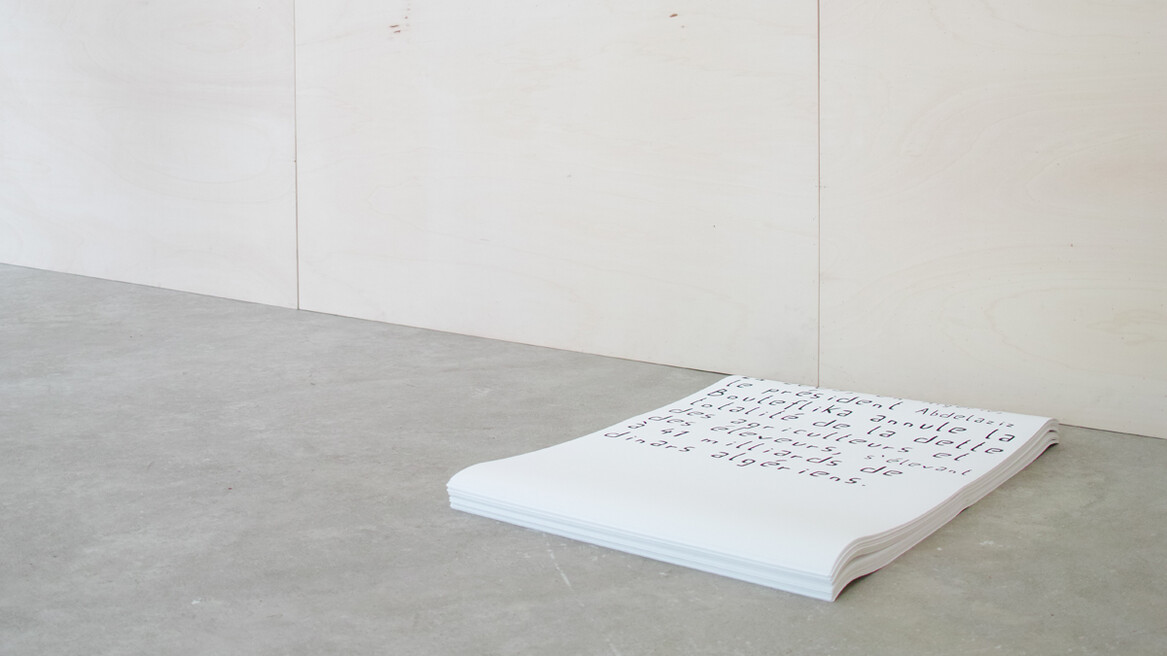 le président Abdelaziz
Bouteflika annule la
totalité de la dette
des agriculteurs et
des éleveurs, s'élevant
à 41 milliards de
dinars algériens.